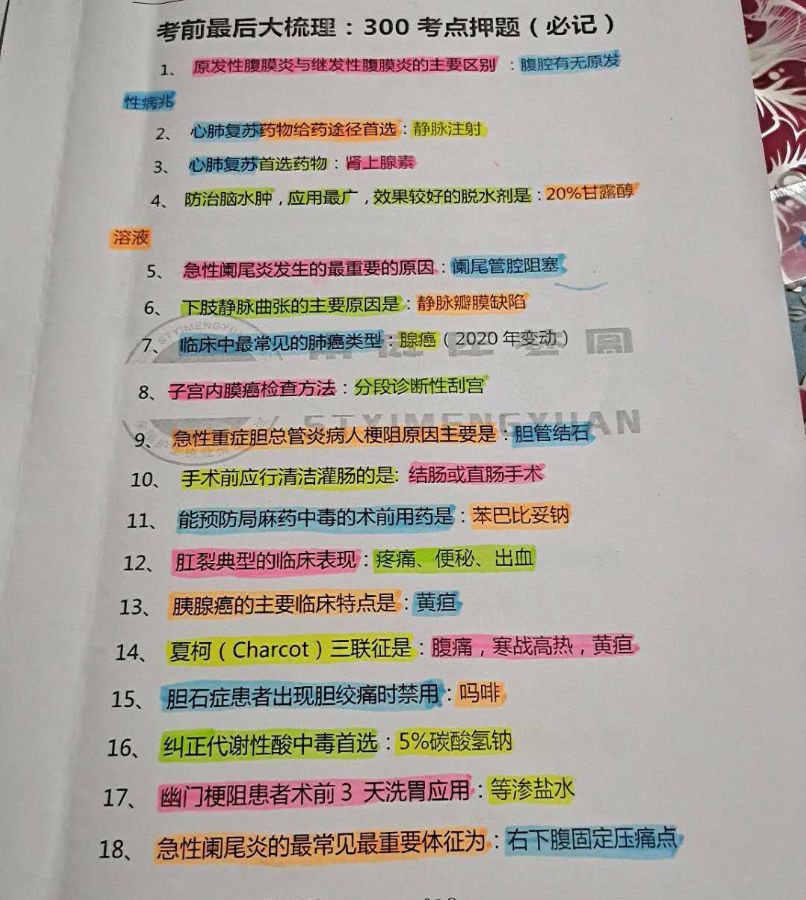 考前最后大梳理：300 考点押题（必记）
1、 原发性腹膜炎与继发性腹膜炎的主要区别 ：腹腔有无原发
性病兆
2、 心肺复苏药物给药途径首选：静脉注射
3、 心肺复苏首选药物：肾上腺素
4、 防治脑水肿，应用最广，效果较好的脱水剂是：20%甘露醇
溶液
5、 急性阑尾炎发生的最重要的原因：阑尾管腔阻塞
6、 下肢静脉曲张的主要原因是：静脉瓣膜缺陷
STYIMENGYUAN
7、 临床中最常见的肺癌类型：腺癌（2020 年变动）
8、 子宫内膜癌检查方法：分段诊断性刮宫
STYIMENGYUAN
9、 急性重症胆总管炎病人梗阻原因主要是：胆管结石
10、 手术前应行清洁灌肠的是: 结肠或直肠手术
11、 能预防局麻药中毒的术前用药是：苯巴比妥钠
12、 肛裂典型的临床表现：疼痛、便秘、出血
13、 胰腺癌的主要临床特点是：黄疸
14、 夏柯（Charcot）三联征是：腹痛，寒战高热，黄疸
15、 胆石症患者出现胆绞痛时禁用：吗啡
16、 纠正代谢性酸中毒首选：5%碳酸氢钠
17、 幽门梗阻患者术前 3 天洗胃应用：等渗盐水
18、 急性阑尾炎的最常见最重要体征为：右下腹固定压痛点